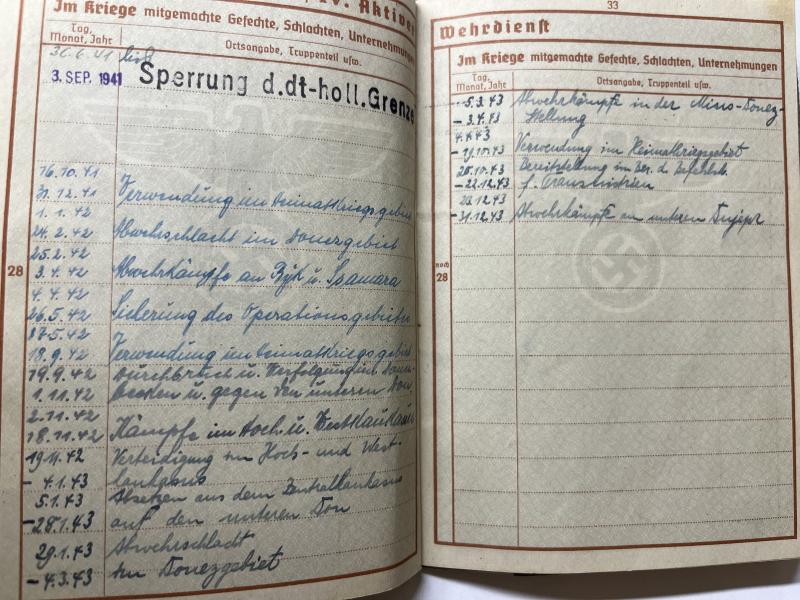 IV. Aktiver
Im Kriege mitgemachte Gefechte, Schlachten, Unternehmungen
Tag, Monat, Jahr
Ortsangabe, Truppenteil usw.
30.6.41 bis
3. SEP. 1941 Sperrung d.dt-holl.Grenze
16.10.41
31.12.41 Verwendung im Heimatkriegsgebiet
1.1.42
24.2.42 Abwehrschlacht im Donezgebiet
25.2.42
3.4.42 Abwehrkämpfe an Bijk u. Ssamara
4.4.42
26.5.42 Sicherung des Operationsgebietes
27.5.42
18.9.42 Verwendung im Heimatkriegsgebiet
19.9.42 Durchbruch u. Verfolgung im Donez-
1.11.42 becken u. gegen den unteren Don
2.11.42
18.11.42 Kämpfe im Hoch u. Westkaukasus
19.11.42 Verteidigung im Hoch- und West-
- 4.1.43 kaukasus
5.1.43 Absetzen aus dem Zentralkaukasus
- 28.1.43 auf den unteren Don
29.1.43 Abwehrschlacht
- 4.3.43 im Donezgebiet
28
33
Wehrdienst
Im Kriege mitgemachte Gefechte, Schlachten, Unternehmungen
Tag, Monat, Jahr
Ortsangabe, Truppenteil usw.
5.3.43 Abwehrkämpfe in der Mius-Donez-
- 3.4.43 Stellung
4.4.43
- 19.10.43 Verwendung im Heimatkriegsgebiet
20.10.43 Bereitstellung im Ber. d. Befehlsh.
- 22.12.43 f. Transnistrien
23.12.43
- 31.12.43 Abwehrkämpfe am unteren Dnjepr
noch
28